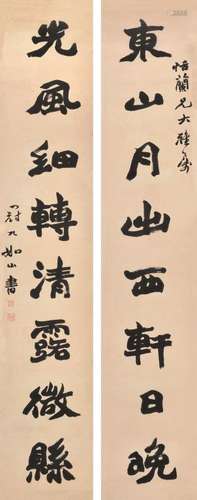 東山月出西軒日晚
悟蘭兄大雅屬
光風細轉清露微縣
冠九如山書